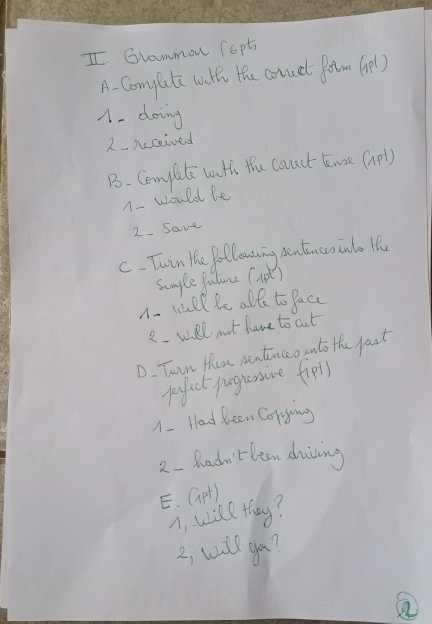 II Grammar (6pts
A - Complete with the correct form (1pt)
1 - doing
2 - received
B - Complete with the correct tense (1pt)
1 - would be
2 - Save
C - Turn the following sentences into the
simple future (1pt)
1 - will be able to face
2 - will not have to cut
D - Turn these sentences into the past
perfect progressive (1pt)
1 - Had been Copying
2 - hadn't been driving
E. (1pt)
1, Will they?
2, Will you?
2